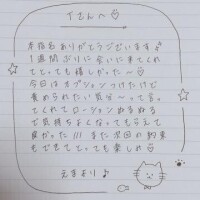 Tさんへ♡
本指名ありがとうございます♪
1週間ぶりに会いに来てくれ
てとっても嬉しかった〜♡
今日はオプションつけたけど
責められたい気分〜って言っ
てくれてローションぬるぬる
で気持ちよくなってもらえて
良かった///また次回の約束
もできてとっても楽しみ♡
えまより♪